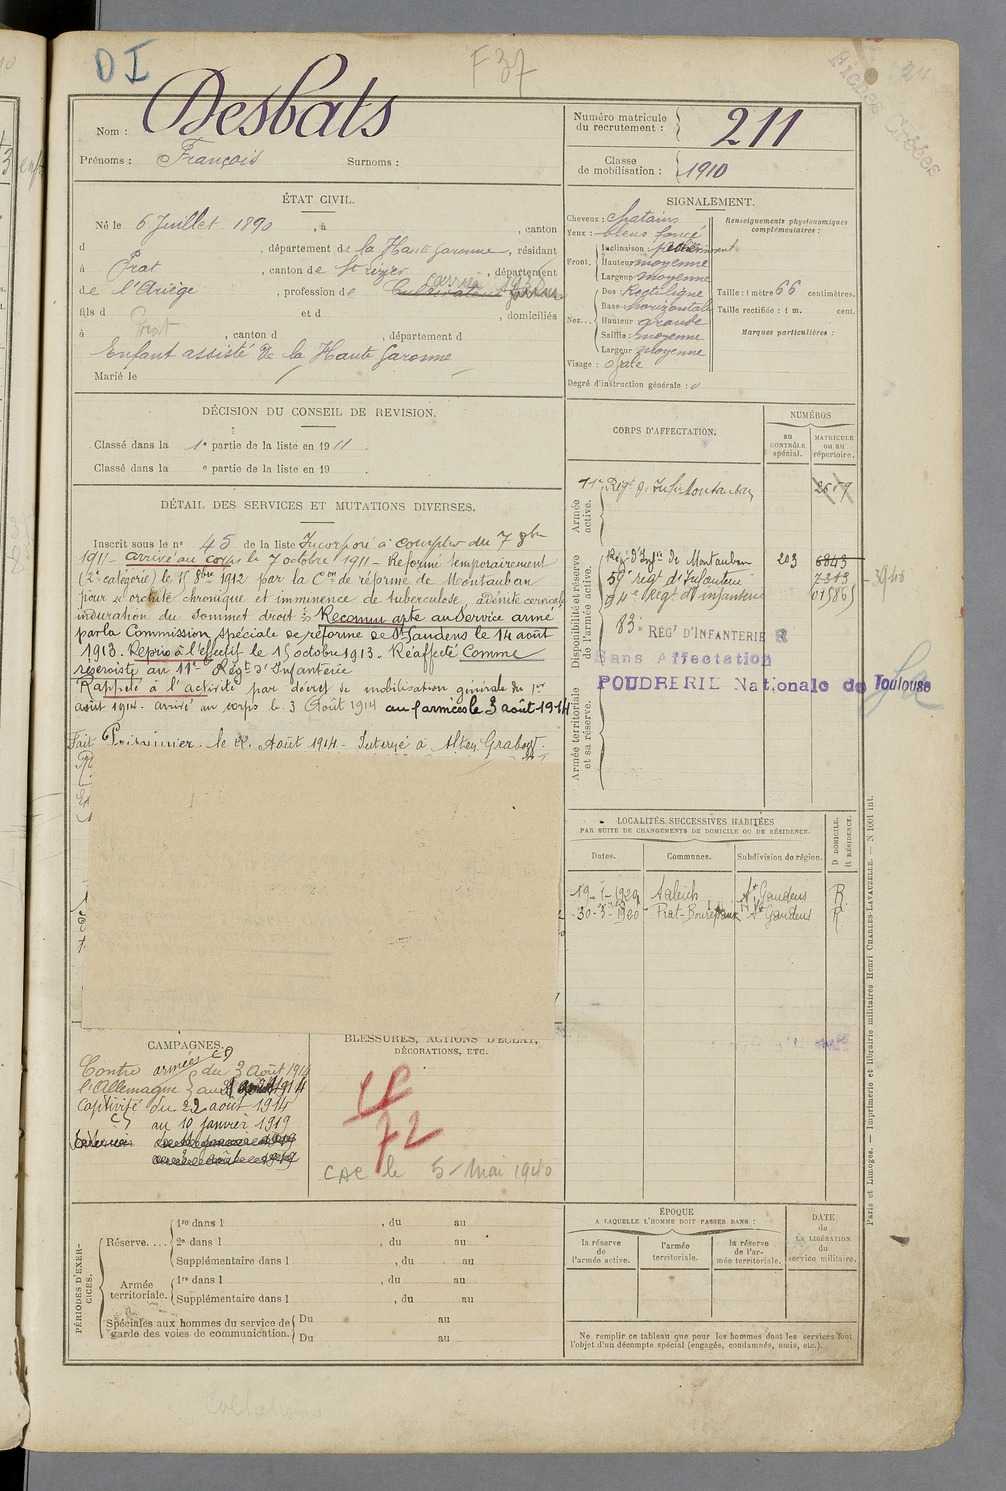 DI
F 37
Fiches Créées
Nom : Desbats
Prénoms : François Surnoms :
Numéro matricule
du recrutement : 211
Classe
de mobilisation : 1910
ÉTAT CIVIL.
Né le 6 Juillet 1890 , à , canton
d , département de la Haute Garonne , résidant
à Prat , canton de St Lizier , département
de l'Ariège , profession de Cultivateur
fils d et d , domiciliés
à Prat , canton d , département d
Enfant assisté de la Haute Garonne
Marié le
SIGNALEMENT.
Cheveux : chatains
Yeux : bleus foncé
Front. Inclinaison :
Hauteur moyenne
Largeur moyenne
Nez... Dos : Rectiligne
Base horizontale
Hauteur grande
Saillie : moyenne
Largeur moyenne
Visage : ovale
Degré d'instruction générale :
Renseignements physionomiques
complémentaires :
Taille : 1 mètre 66 centimètres.
Taille rectifiée : 1 m. cent.
Marques particulières :
DÉCISION DU CONSEIL DE REVISION.
Classé dans la 1e partie de la liste en 1911 .
Classé dans la e partie de la liste en 19 .
DÉTAIL DES SERVICES ET MUTATIONS DIVERSES.
Inscrit sous le no 45 de la liste Incorporé à compter du 7 8bre
1911 - arrivé au corps le 7 octobre 1911 - Réformé temporairement
(2e catégorie) le 15 8bre 1912 par la Con de réforme de Montauban
pour " orchite chronique et imminence de tuberculose, adénite cervicale
induration du sommet droit " Reconnu apte au Service armé
par la Commission spéciale de réforme de St Gaudens le 14 août
1913. Repris à l'effectif le 15 octobre 1913. Réaffecté comme
réserviste au 11e Régt d'Infanterie
Rappelé à l'activité par décret de mobilisation générale du 1er
août 1914. arrivé au corps le 3 Août 1914 aux armées le 3 août 1914
Fait Prisonnier le 22 Août 1914 - Interné à Alten Grabow.
CORPS D'AFFECTATION.
NUMÉROS
au
CONTRÔLE
spécial.
MATRICULE
ou au
répertoire.
Armée
active.
11e Régt d'Infie Montauban 2619
Disponibilité et réserve
de l'armée active.
Régt d'Infie de Montauban 203 6843
59e régt d'Infanterie 7313
Régt d'infanterie 01586
3940
83e RÉGT D'INFANTERIE R
Sans Affectation
POUDRERIE Nationale de Toulouse
Armée territoriale
et sa réserve.
LOCALITÉS SUCCESSIVES HABITÉES
PAR SUITE DE CHANGEMENTS DE DOMICILE OU DE RÉSIDENCE.
Dates. Communes. Subdivision de région. D DOMICILE. R RÉSIDENCE.
19-1-1920 Saleich St Gaudens R
30-3-1920 Prat-Bonrepaux St Gaudens R
CAMPAGNES.
Contre armées du 3 Août 1914
l'Allemagne au 21 août 1914
Captivité du 22 août 1914
au 10 janvier 1919
BLESSURES, ACTIONS D'ÉCLAT,
DÉCORATIONS, ETC.
72
CAC le 5 Mai 1940
PÉRIODES D'EXER-
CICES.
Réserve.... 1re dans l , du au
2e dans l , du au
Supplémentaire dans l , du au
Armée
territoriale. 1re dans l , du au
Supplémentaire dans l , du au
Spéciales aux hommes du service de
garde des voies de communication. Du au
Du au
ÉPOQUE
A LAQUELLE L'HOMME DOIT PASSER DANS :
la réserve
de
l'armée active.
l'armée
territoriale.
la réserve
de l'ar-
mée territoriale.
DATE
de
LA LIBÉRATION
du
service militaire.
Ne remplir ce tableau que pour les hommes dont les services font
l'objet d'un décompte spécial (engagés, condamnés, omis, etc.).
Paris et Limoges. — Imprimerie et librairie militaires Henri CHARLES-LAVAUZELLE. — N 1001 int.